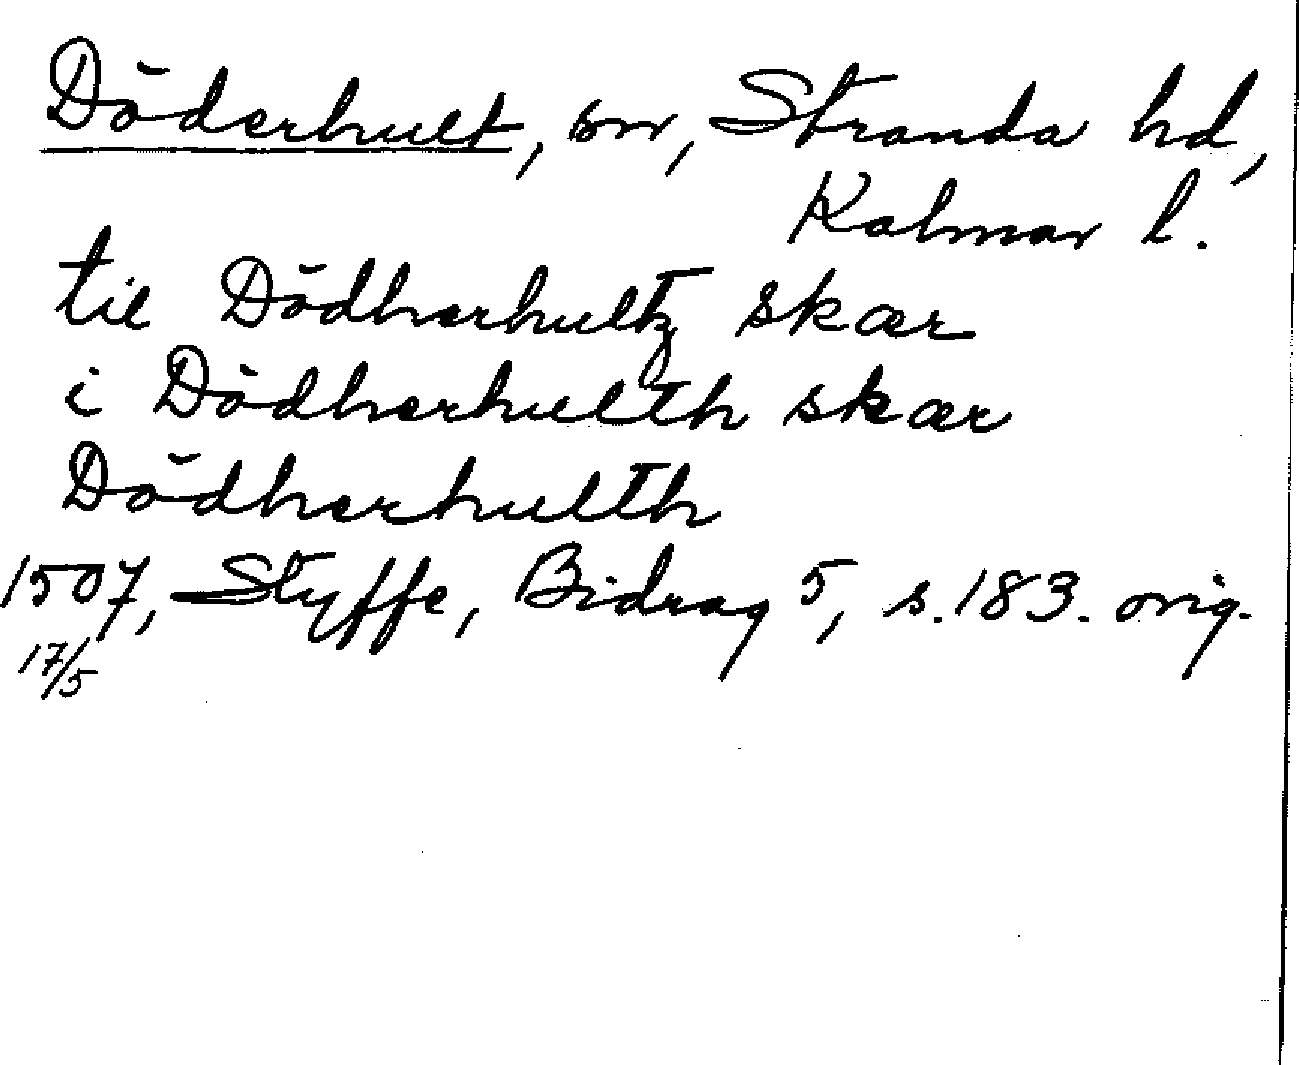 Döderhult, sn, Stranda hd,
Kalmar l.
til Dödherhultz skær
i Dödherhulth skær
Dödherhulth
1507, Styffe, Bidrag 5, s. 183. orig.
17/5